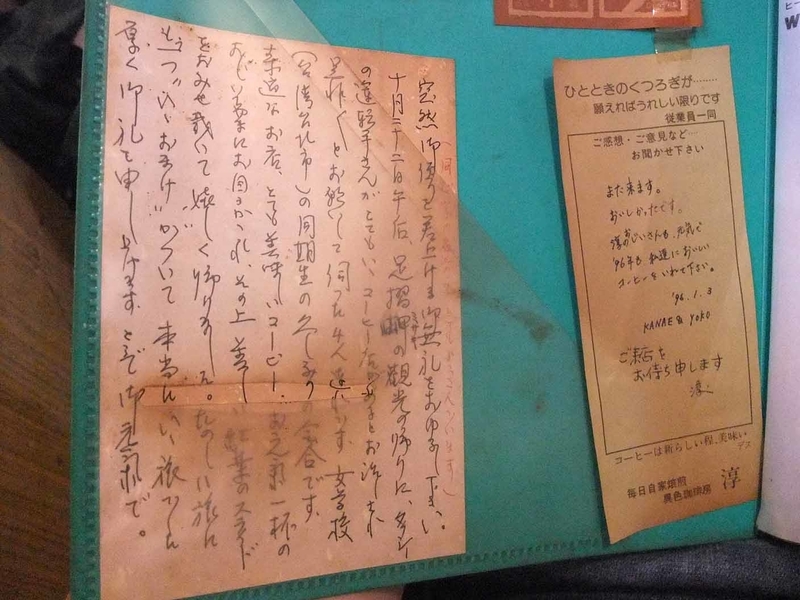 突然御便りを差上げる御無礼をおゆるし下さい。
十月二十二日午后、足摺岬の観光の帰りに、タクシー
の運転手さんがとてもいいコーヒー店があるとお話しされ
是非にとお願いして伺った4人連れです。女学校
(台湾台北市)の同期生の久しぶりの会合です。
素適なお店、とても美味しいコーヒー、お元気一杯の
おじい様にお目にかかれ、その上美しい紅葉のスライド
をおみせ戴いて嬉しく帰りました。たのしい旅に
もう一つ、"おまけ"がついて本当にいい旅でした
厚く御礼を申し上げます。どうぞ御元気で。
ひとときのくつろぎが………
願えればうれしい限りです
従業員一同
ご感想・ご意見など…
お聞かせ下さい
また来ます。
おいしかったです。
淳のおじいさんも、元気で
'96年も私達においしい
コーヒーをいれて下さい。
'96.1.3
KANAE & YOKO
ご来店を
お待ち申します
淳
コーヒーは新らしい程、美味い
デス
毎日自家焙煎
異色珈琲房 淳